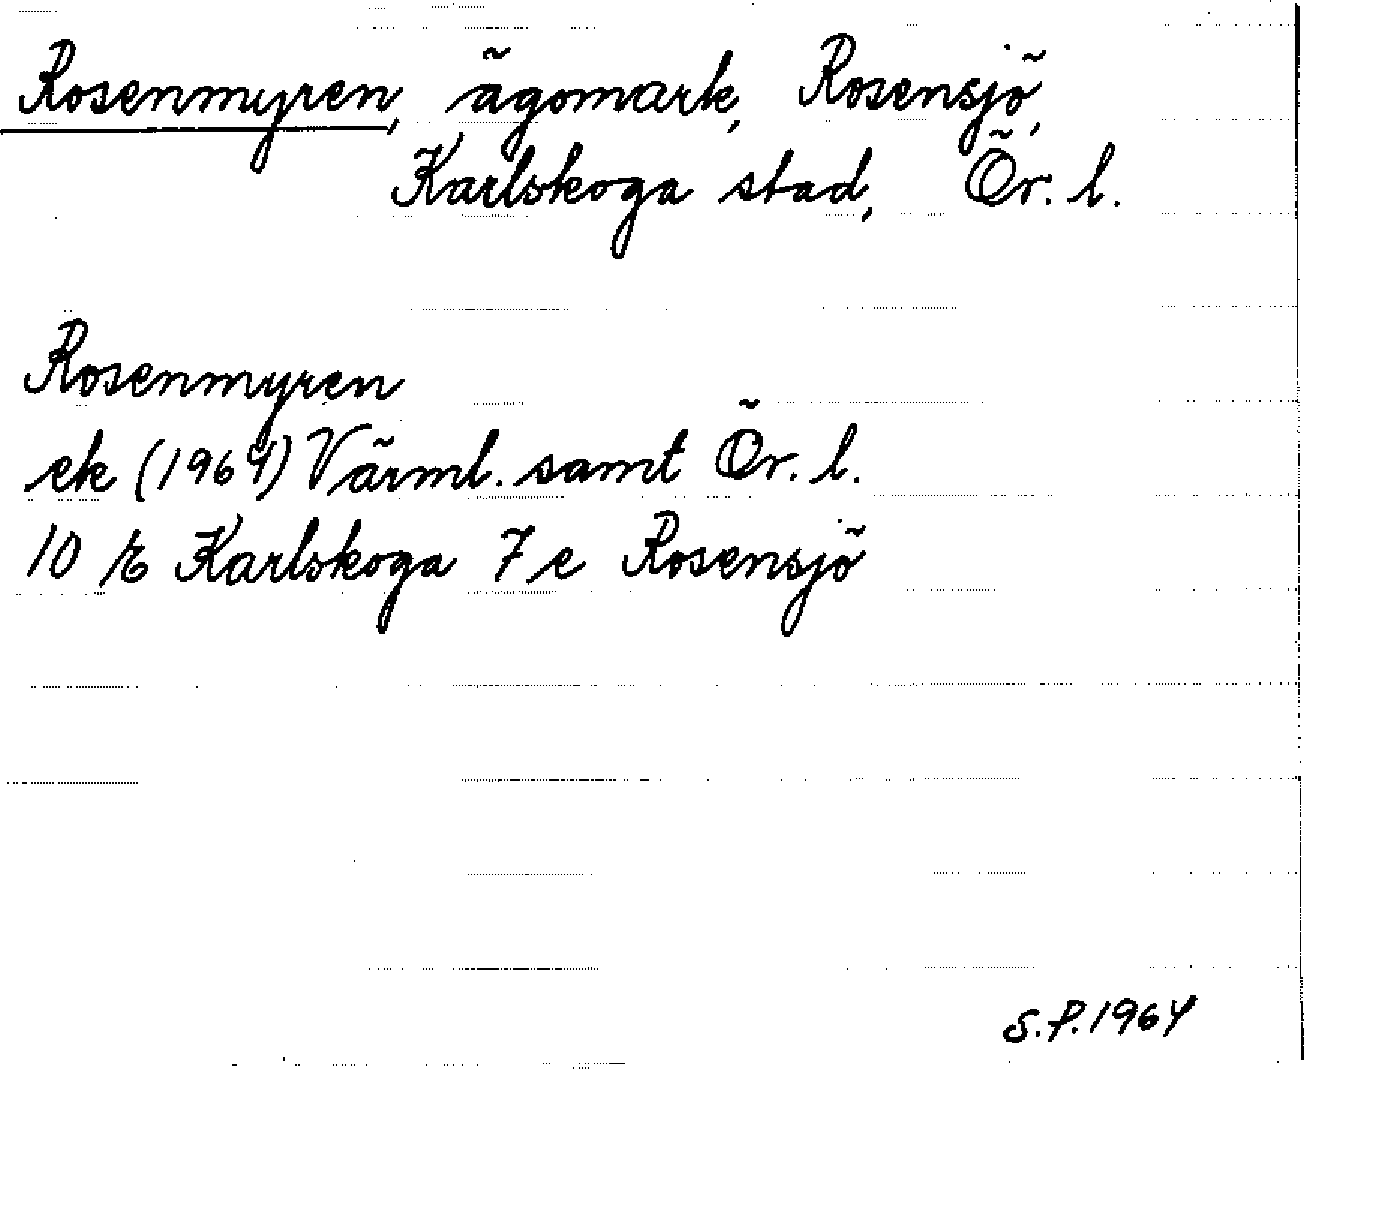 Rosenmyren, ägomark, Rosensjö,
Karlskoga stad, Ör. l.
Rosenmyren
ek (1964) Värml. samt Ör. l.
10 E Karlskoga 7 e Rosensjö
S.P. 1964